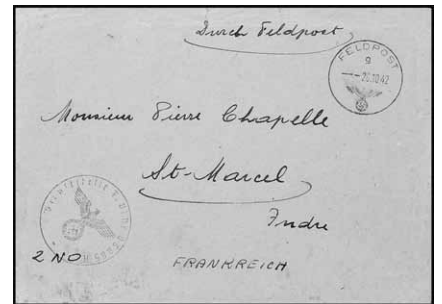 Durch Feldpost
FELDPOST
g
26.10.42
Monsieur Pierre Chapelle
St-Marcel
Indre
2 NO
FRANKREICH